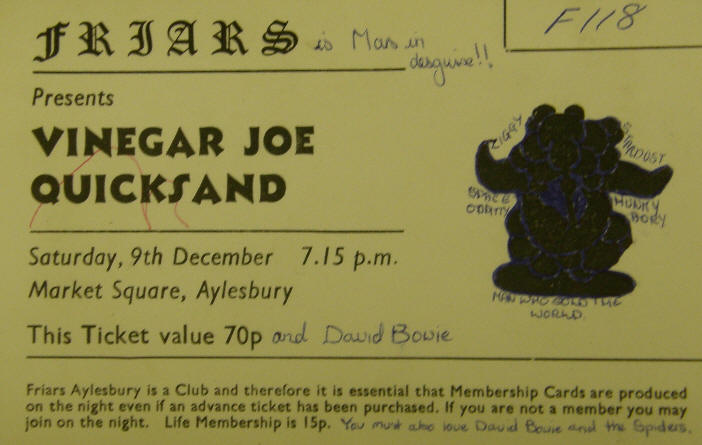 F118
FRIARS is Mars in
disguise!!
Presents
VINEGAR JOE
QUICKSAND
ZIGGY
STARDUST
SPACE
ODDITY
HUNKY
DORY
MAN WHO SOLD THE
WORLD.
Saturday, 9th December 7.15 p.m.
Market Square, Aylesbury
This Ticket value 70p and David Bowie
Friars Aylesbury is a Club and therefore it is essential that Membership Cards are produced
on the night even if an advance ticket has been purchased. If you are not a member you may
join on the night. Life Membership is 15p. You must also love David Bowie and the Spiders.